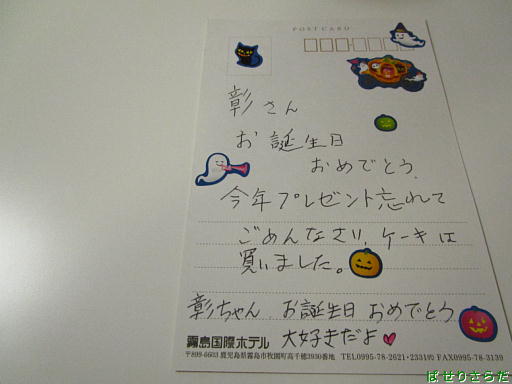 POST CARD
彰さん
お誕生日
おめでとう.
今年プレゼント忘れて
ごめんなさい. ケーキは
買いました。
彰ちゃん お誕生日 おめでとう
大好きだよ
霧島国際ホテル
〒899-6603 鹿児島県霧島市牧園町高千穂3930番地 TEL0995-78-2621・2331㈹ FAX0995-78-3139
ぱせりさらだ